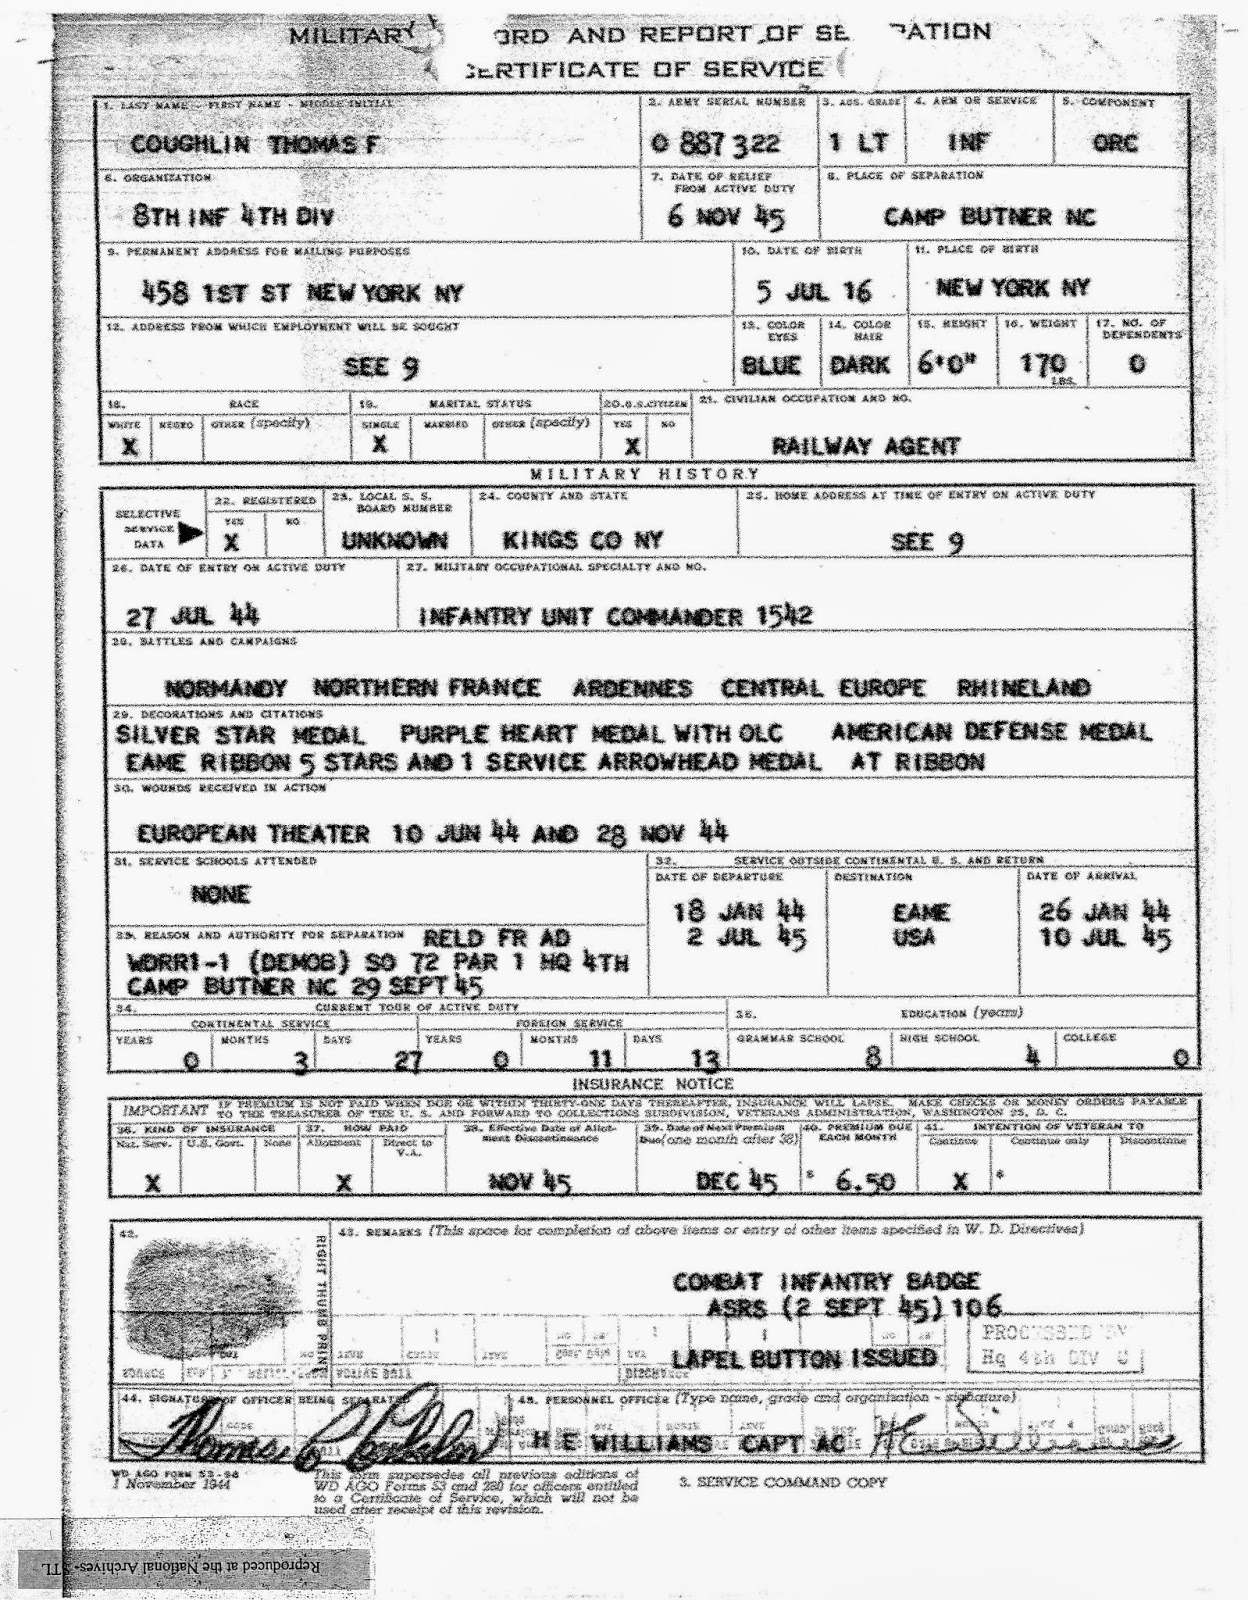 MILITARY ORD AND REPORT OF SE ATION
CERTIFICATE OF SERVICE
1. LAST NAME - FIRST NAME - MIDDLE INITIAL
COUGHLIN THOMAS F
2. ARMY SERIAL NUMBER
O 887 322
3. AUS. GRADE
1 LT
4. ARM OR SERVICE
INF
5. COMPONENT
ORC
6. ORGANIZATION
8TH INF 4TH DIV
7. DATE OF RELIEF
FROM ACTIVE DUTY
6 NOV 45
8. PLACE OF SEPARATION
CAMP BUTNER NC
9. PERMANENT ADDRESS FOR MAILING PURPOSES
458 1ST ST NEW YORK NY
10. DATE OF BIRTH
5 JUL 16
11. PLACE OF BIRTH
NEW YORK NY
12. ADDRESS FROM WHICH EMPLOYMENT WILL BE SOUGHT
SEE 9
13. COLOR
EYES
BLUE
14. COLOR
HAIR
DARK
15. HEIGHT
6'0"
16. WEIGHT
170
LBS.
17. NO. OF
DEPENDENTS
0
18. RACE
WHITE NEGRO OTHER (specify)
X
19. MARITAL STATUS
SINGLE MARRIED OTHER (specify)
X
20. U.S. CITIZEN
YES NO
X
21. CIVILIAN OCCUPATION AND NO.
RAILWAY AGENT
MILITARY HISTORY
SELECTIVE
SERVICE
DATA
22. REGISTERED
YES NO
X
23. LOCAL S. S.
BOARD NUMBER
UNKNOWN
24. COUNTY AND STATE
KINGS CO NY
25. HOME ADDRESS AT TIME OF ENTRY ON ACTIVE DUTY
SEE 9
26. DATE OF ENTRY ON ACTIVE DUTY
27 JUL 44
27. MILITARY OCCUPATIONAL SPECIALTY AND NO.
INFANTRY UNIT COMMANDER 1542
28. BATTLES AND CAMPAIGNS
NORMANDY NORTHERN FRANCE ARDENNES CENTRAL EUROPE RHINELAND
29. DECORATIONS AND CITATIONS
SILVER STAR MEDAL PURPLE HEART MEDAL WITH OLC AMERICAN DEFENSE MEDAL
EAME RIBBON 5 STARS AND 1 SERVICE ARROWHEAD MEDAL AT RIBBON
30. WOUNDS RECEIVED IN ACTION
EUROPEAN THEATER 10 JUN 44 AND 28 NOV 44
31. SERVICE SCHOOLS ATTENDED
NONE
32. SERVICE OUTSIDE CONTINENTAL U. S. AND RETURN
DATE OF DEPARTURE DESTINATION DATE OF ARRIVAL
18 JAN 44 EAME 26 JAN 44
2 JUL 45 USA 10 JUL 45
33. REASON AND AUTHORITY FOR SEPARATION RELD FR AD
WDRR1-1 (DEMOB) SO 72 PAR 1 HQ 4TH
CAMP BUTNER NC 29 SEPT 45
34. CURRENT TOUR OF ACTIVE DUTY
CONTINENTAL SERVICE FOREIGN SERVICE
YEARS MONTHS DAYS YEARS MONTHS DAYS
0 3 27 0 11 13
35. EDUCATION (years)
GRAMMAR SCHOOL HIGH SCHOOL COLLEGE
8 4 0
INSURANCE NOTICE
IMPORTANT IF PREMIUM IS NOT PAID WHEN DUE OR WITHIN THIRTY-ONE DAYS THEREAFTER, INSURANCE WILL LAPSE. MAKE CHECKS OR MONEY ORDERS PAYABLE
TO THE TREASURER OF THE U. S. AND FORWARD TO COLLECTIONS SUBDIVISION, VETERANS ADMINISTRATION, WASHINGTON 25, D. C.
36. KIND OF INSURANCE
Nat. Serv. U.S. Govt. None
X
37. HOW PAID
Allotment Direct to
V.A.
X
38. Effective Date of Allot-
ment Discontinuance
NOV 45
39. Date of Next Premium
Due (one month after 38)
DEC 45
40. PREMIUM DUE
EACH MONTH
$ 6.50
41. INTENTION OF VETERAN TO
Continue Continue only Discontinue
X $
42.
RIGHT THUMB PRINT
43. REMARKS (This space for completion of above items or entry of other items specified in W. D. Directives)
COMBAT INFANTRY BADGE
ASRS (2 SEPT 45) 106
LAPEL BUTTON ISSUED
PROCESSED BY
Hq 4th DIV
44. SIGNATURE OF OFFICER BEING SEPARATED
Thomas F Coughlin
45. PERSONNEL OFFICER (Type name, grade and organization - signature)
H E WILLIAMS CAPT AC H E Williams
WD AGO FORM 53-98
1 November 1944
This form supersedes all previous editions of
WD AGO Forms 53 and 280 for officers entitled
to a Certificate of Service, which will not be
used after receipt of this revision.
3. SERVICE COMMAND COPY
Reproduced at the National Archives- STL